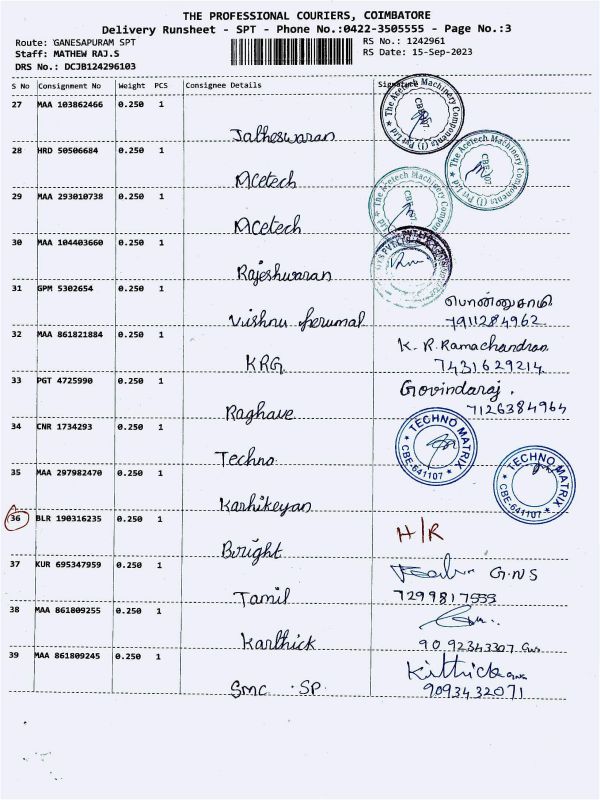 THE PROFESSIONAL COURIERS, COIMBATORE
Delivery Runsheet - SPT - Phone No.:0422-3505555 - Page No.:3
Route: GANESAPURAM SPT
RS No.: 1242961
Staff: MATHEW RAJ.S
RS Date: 15-Sep-2023
DRS No.: DCJB124296103
S No Consignment No Weight PCS Consignee Details Signature
27 MAA 103862466 0.250 1
Jatheswaran
The Acetech Machinery Components (I) Pvt Ltd
28 HRD 50506684 0.250 1
Acetech
The Acetech Machinery Components (I) Pvt Ltd
29 MAA 293010738 0.250 1
Acetech
The Acetech Machinery Components
30 MAA 104403660 0.250 1
Rajeshwaran
31 GPM 5302654 0.250 1
Vishnu Perumal
பொன்னுசாமி
7911284962
32 MAA 861821884 0.250 1
KRG
K. R. Ramachandran
7431629214
33 PGT 4725990 0.250 1
Raghave
Govindaraj.
7126384964
34 CNR 1734293 0.250 1
Techno
TECHNO MATRIX
CBE-641107
35 MAA 297982470 0.250 1
Karhikeyan
TECHNO MATRIX
CBE-641107
36 BLR 190316235 0.250 1
Bright
H/R
37 KUR 695347959 0.250 1
Tamil
G.N.S
38 MAA 861809255 0.250 1
Karthick
39 MAA 861809245 0.250 1
SMC SP.
9093432071